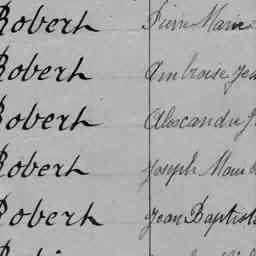 Robert Pierre Marie
Robert Ambroise Jea
Robert Alexandre J
Robert Joseph Marie
Robert Jean Baptist